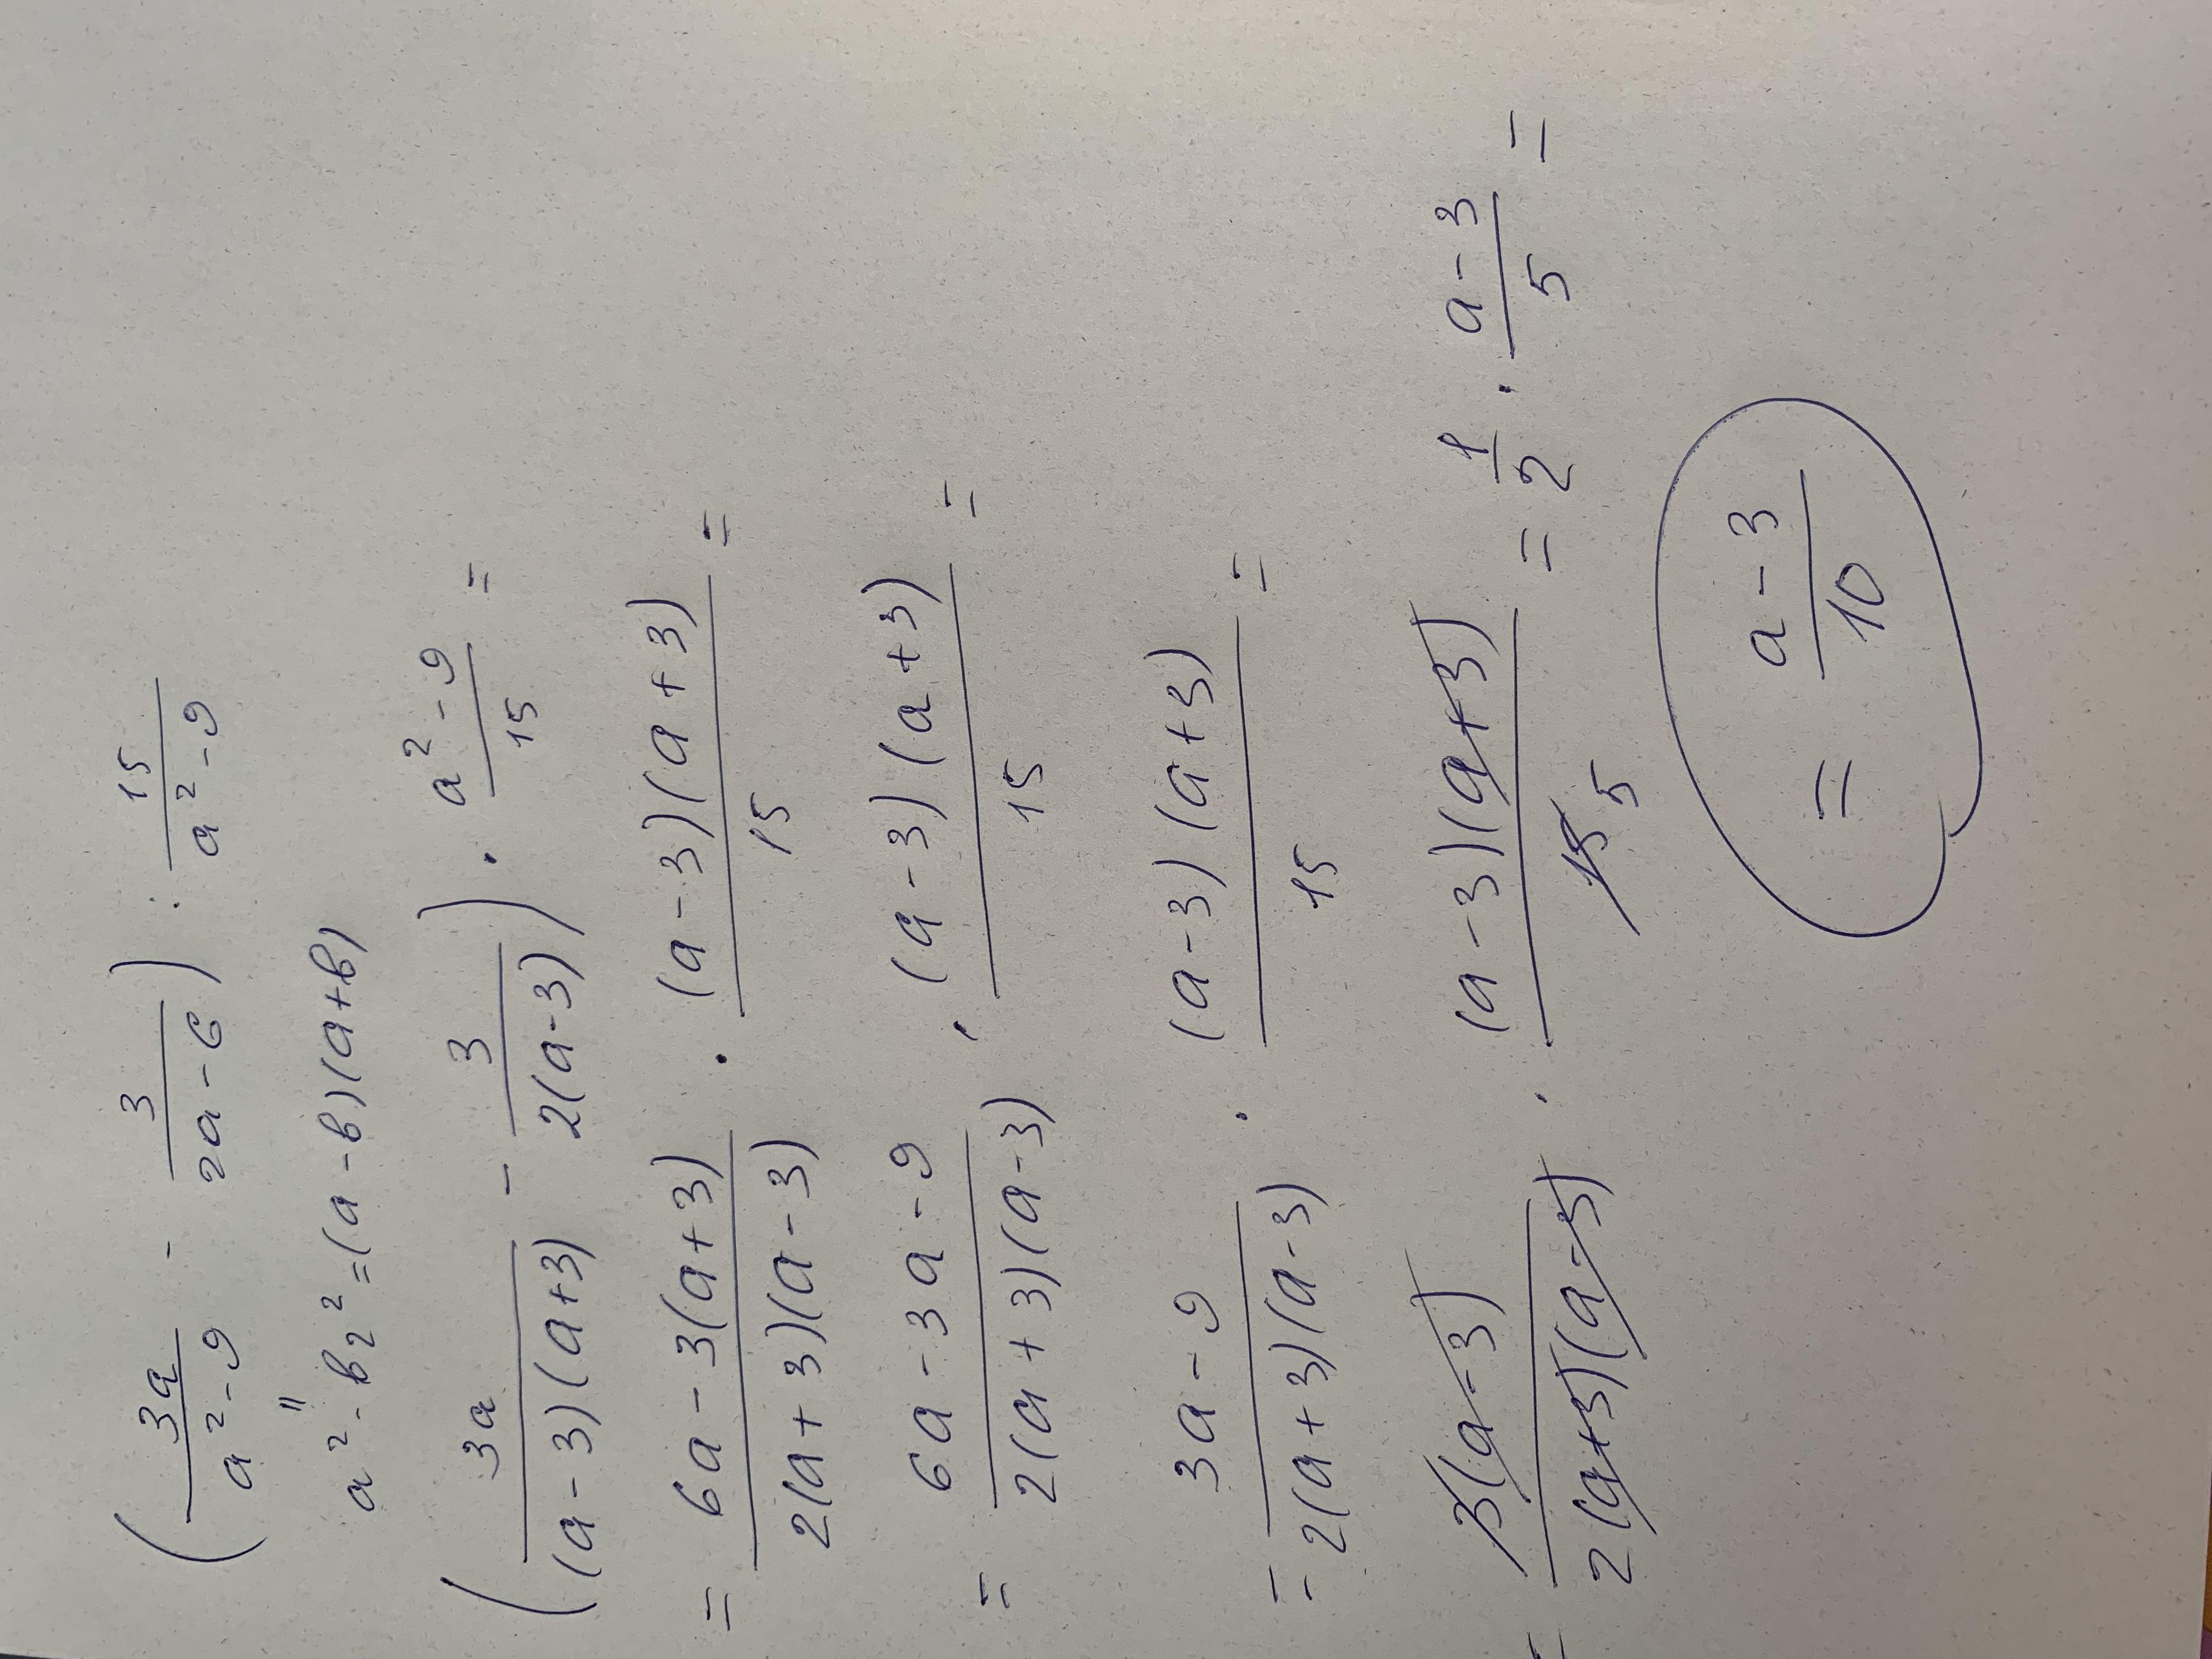 (3a/(a²-9) - 3/(2a-6)) : 15/(a²-9)
"
a² - b₂² = (a-b)(a+b)
(3a/((a-3)(a+3)) - 3/(2(a-3))) · (a²-9)/15 =
= (6a-3(a+3))/(2(a+3)(a-3)) · ((a-3)(a+3))/15 =
= (6a-3a-9)/(2(a+3)(a-3)) · ((a-3)(a+3))/15 =
= (3a-9)/(2(a+3)(a-3)) · ((a-3)(a+3))/15 =
= (3(a-3))/(2(a+3)(a-3)) · ((a-3)(a+3))/(15 5) = 1/2 · (a-3)/5 =
= (a-3)/10